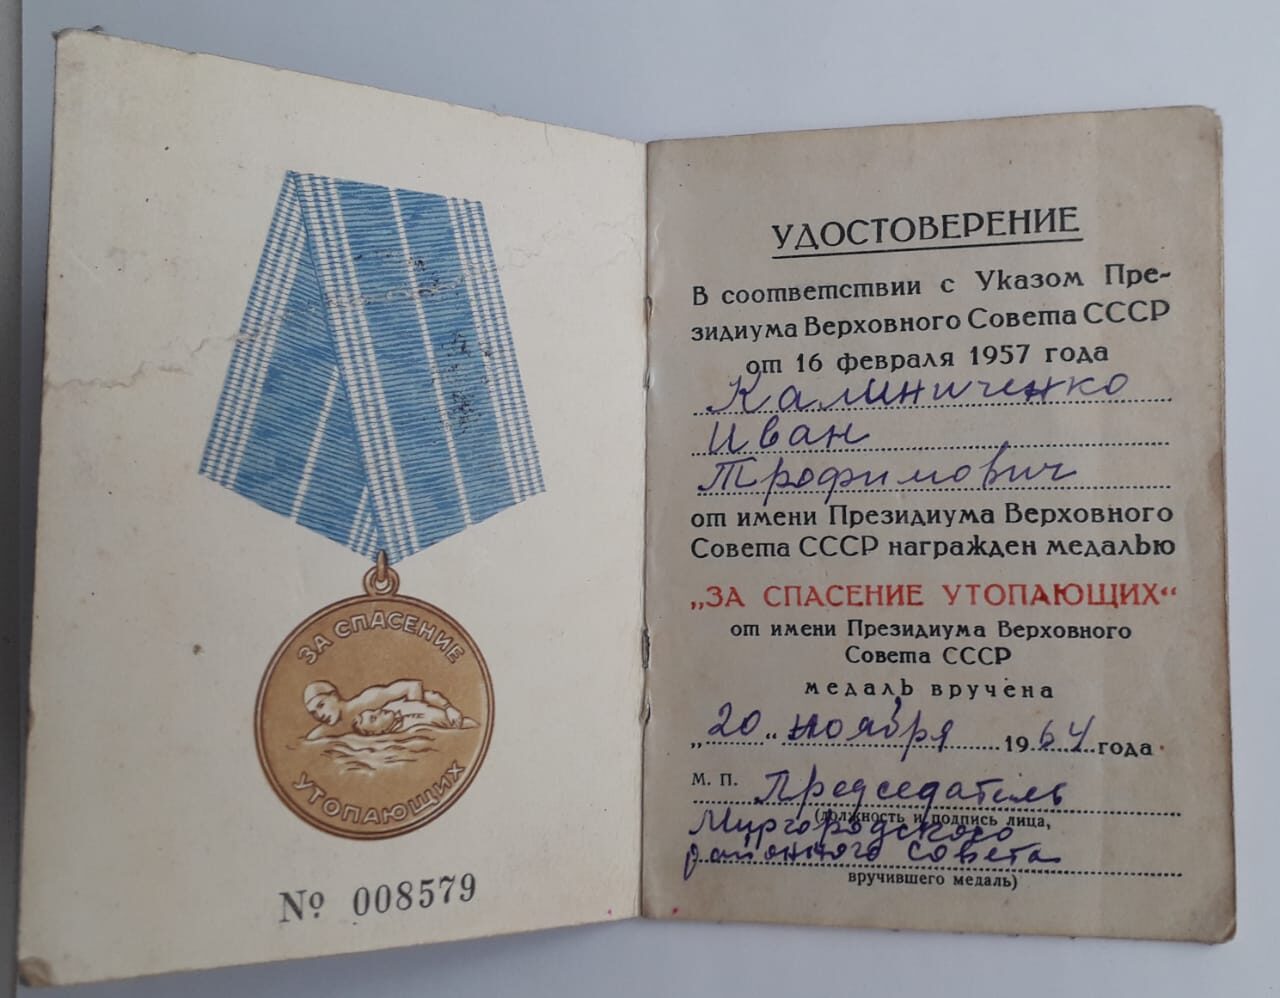 ЗА СПАСЕНИЕ
УТОПАЮЩИХ
№ 008579
УДОСТОВЕРЕНИЕ
В соответствии с Указом Пре-
зидиума Верховного Совета СССР
от 16 февраля 1957 года
Калиниченко
Иван
Трофимович
от имени Президиума Верховного
Совета СССР награжден медалью
„ЗА СПАСЕНИЕ УТОПАЮЩИХ“
от имени Президиума Верховного
Совета СССР
медаль вручена
„20“ ноября 1964 года
М. П. Председатель
(должность и подпись лица,
Миргородского
районного совета
вручившего медаль)